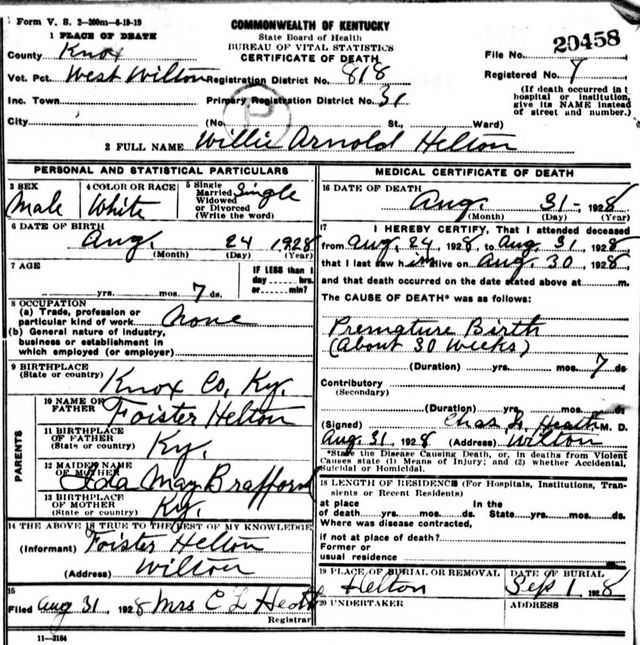 Form V. S. 2-300m-6-19-19
1 PLACE OF DEATH
County Knox
Vot. Pct. West Wilton
Inc. Town
City
COMMONWEALTH OF KENTUCKY
State Board of Health
BUREAU OF VITAL STATISTICS
CERTIFICATE OF DEATH
Registration District No. 818
Primary Registration District No. 31
(No. St., Ward)
File No. 20458
Registered No. 9
(If death occurred in a hospital or institution, give its NAME instead of street and number.)
2 FULL NAME Willie Arnold Helton
PERSONAL AND STATISTICAL PARTICULARS
3 SEX Male
4 COLOR OR RACE White
5 Single Married Widowed or Divorced (Write the word) Single
6 DATE OF BIRTH
Aug. 24 1928
(Month) (Day) (Year)
7 AGE
yrs. mos. 7 ds.
IF LESS than 1 day hrs. or min?
8 OCCUPATION
(a) Trade, profession or particular kind of work None
(b) General nature of industry, business or establishment in which employed (or employer)
9 BIRTHPLACE
(State or country) Knox Co, Ky.
PARENTS
10 NAME OF FATHER Foister Helton
11 BIRTHPLACE OF FATHER (State or country) Ky.
12 MAIDEN NAME OF MOTHER Ida May Brafford
13 BIRTHPLACE OF MOTHER (State or country) Ky.
14 THE ABOVE IS TRUE TO THE BEST OF MY KNOWLEDGE
(Informant) Foister Helton
(Address) Wilton
15
Filed Aug 31, 1928 Mrs C L Heath
Registrar
11-3184
MEDICAL CERTIFICATE OF DEATH
16 DATE OF DEATH
Aug. 31- 1928
(Month) (Day) (Year)
17 I HEREBY CERTIFY, That I attended deceased
from Aug. 24, 1928, to Aug 31 1928,
that I last saw him alive on Aug. 30 1928,
and that death occurred on the date stated above at m.
The CAUSE OF DEATH* was as follows:
Premature Birth
(About 30 weeks)
(Duration) yrs. mos. 7 ds
Contributory
(Secondary)
(Duration) yrs. mos. ds
(Signed) Chas L. Heath M. D.
Aug 31, 1928 (Address) Wilton
*State the Disease Causing Death, or, in deaths from Violent Causes state (1) Means of Injury; and (2) whether Accidental, Suicidal or Homicidal.
18 LENGTH OF RESIDENCE (For Hospitals, Institutions, Transients or Recent Residents)
At place of death yrs. mos. ds. In the State yrs. mos. ds.
Where was disease contracted,
if not at place of death?
Former or
usual residence
19 PLACE OF BURIAL OR REMOVAL DATE OF BURIAL
Helton Sep 1, 1928
20 UNDERTAKER ADDRESS